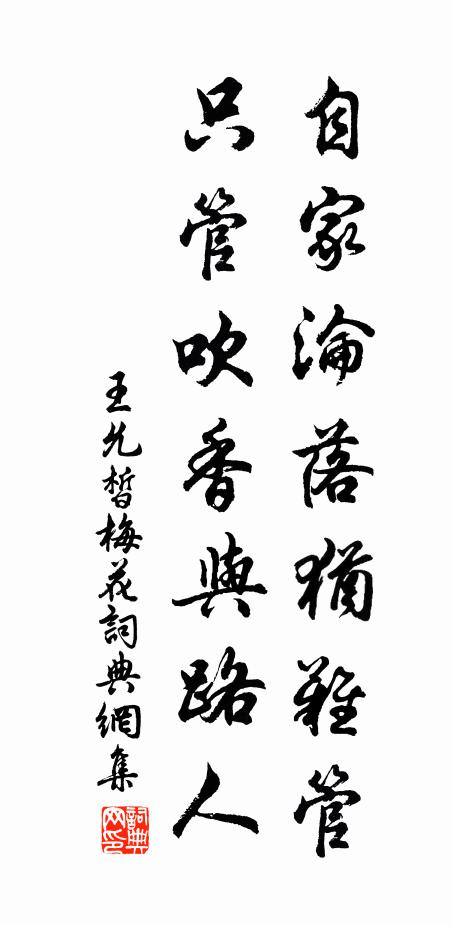 自家淪落猶難管
只管吹香與路人
王允皙梅花詞典網集
詞典网印